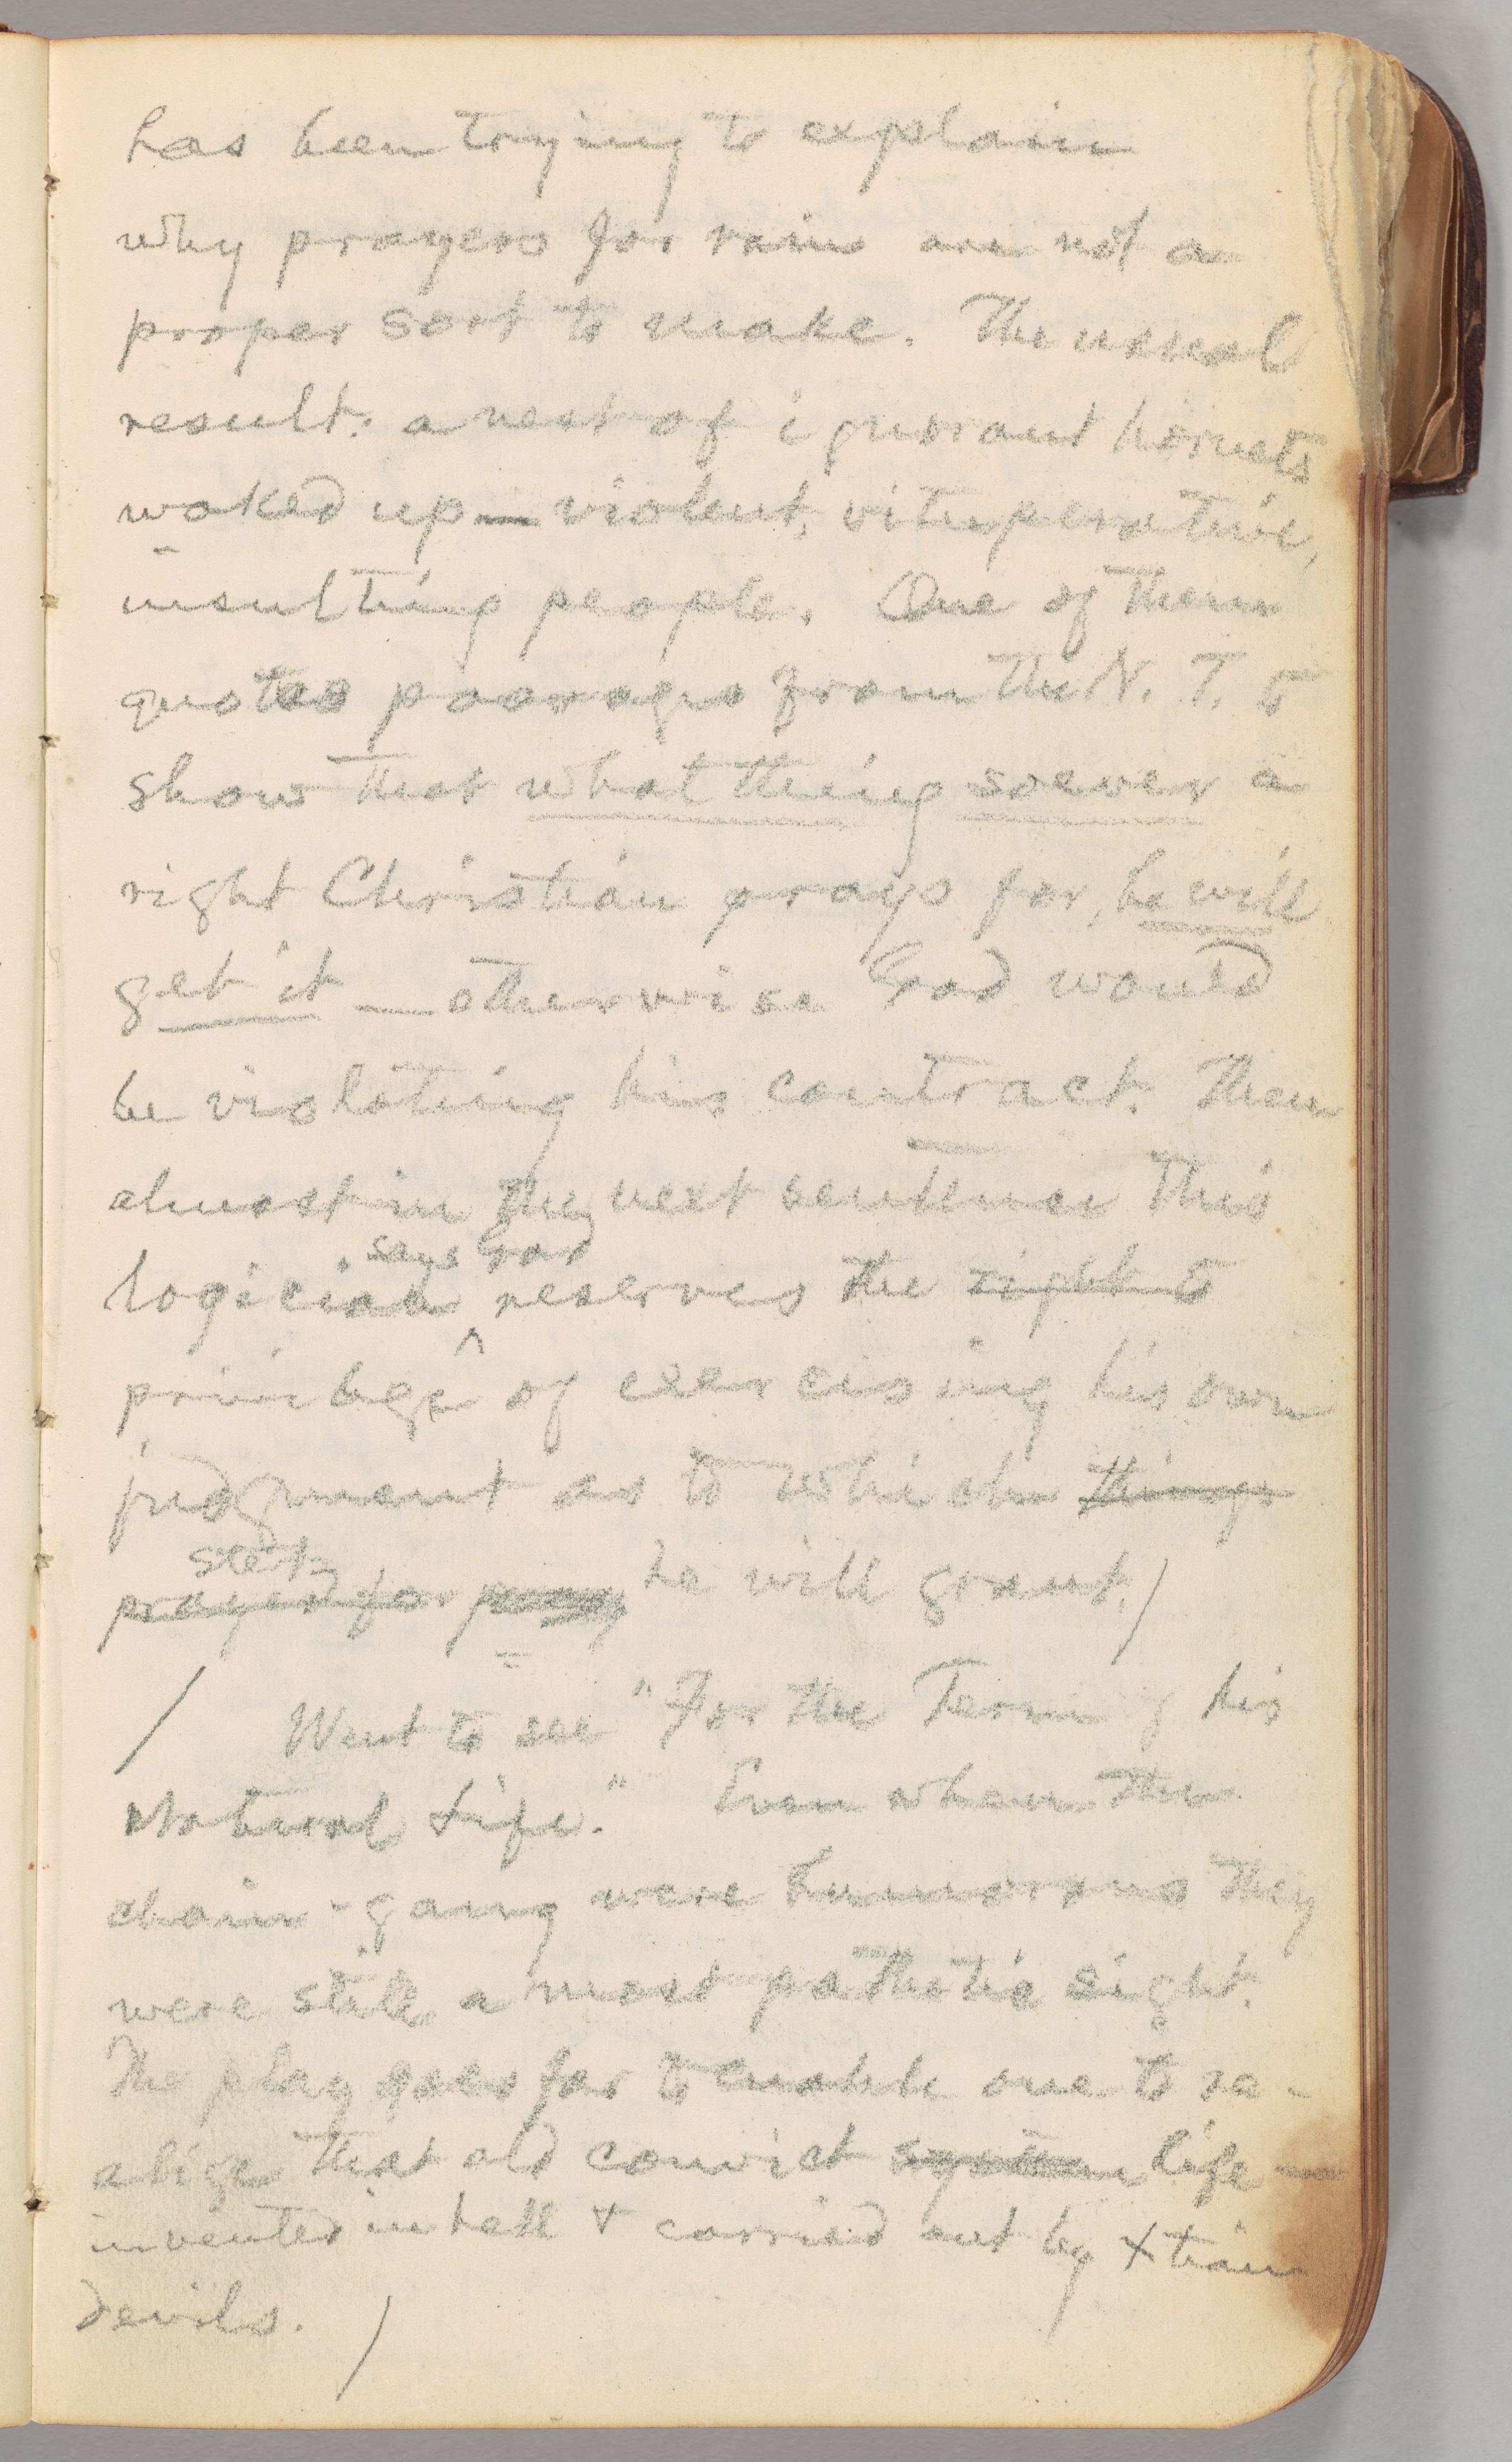 has been trying to explain
why prayers for rain are not a
proper sort to make. The usual
result: a nest of ignorant hornets
waked up — violent, vituperative,
insulting people. One of them
quotes passages from the N. T. to
show that what thing soever a
right Christian prays for, he will
get it — otherwise God would
be violating his contract. Then
almost in the next sentence this
says God
logician reserves the right to
privilege of exercising his own
judgment as to which things
stet
prayed for he will grant. /
/ Went to see "For the Term of his
Natural Life." Even when the
chain-gang were humorous they
were still a most pathetic sight.
The play goes far to enable one to re-
alize that old convict system life —
invented in hell & carried out by Xtian
devils. /